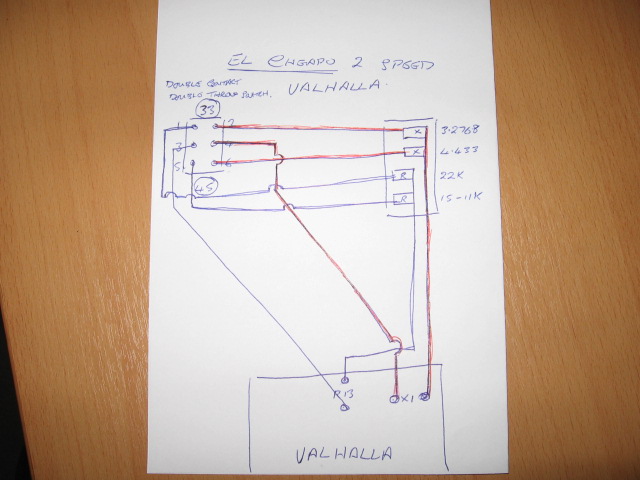 EL CHEAPO 2 SPEED
VALHALLA.
DOUBLE CONTACT
DOUBLE THROW SWITCH.
33
1 2
3 4
5 6
45
X 3.2768
X 4.433
R 22K
R 15-11K
R13
X1
VALHALLA